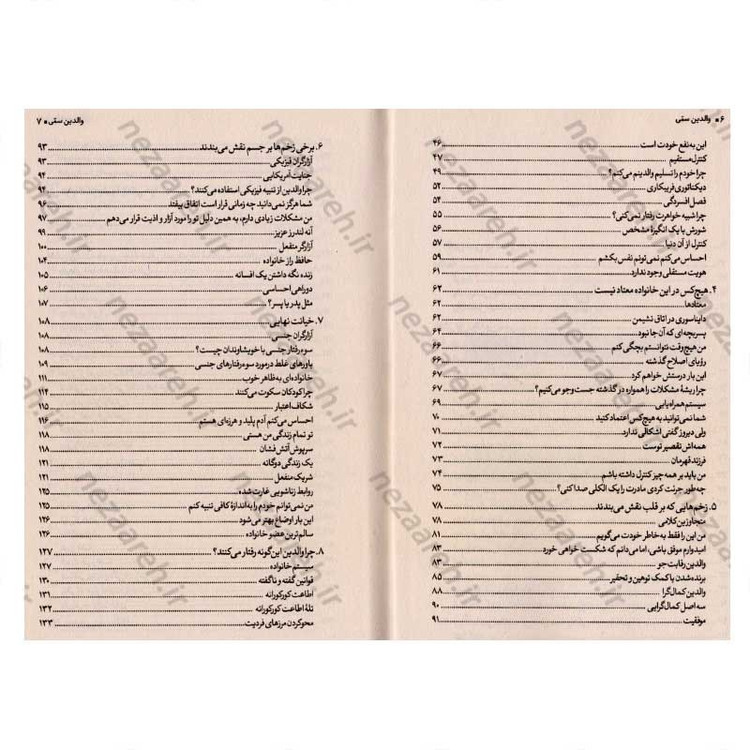 ۶ ■ والدین سمّی
این به‌نفع خودت است ۴۶
کنترل مستقیم ۴۷
چرا خودم را تسلیم والدینم می‌کنم؟ ۴۹
دیکتاتوری فریبکاری ۵۲
فصل افسردگی ۵۴
چرا شبیه خواهرت رفتار نمی‌کنی؟ ۵۵
شورش با یک انگیزهٔ مشخص ۵۶
کنترل از آن دنیا ۵۷
احساس می‌کنم نمی‌تونم نفس بکشم ۵۹
هویت مستقلی وجود ندارد ۶۱
۴. هیچ‌کس در این خانواده معتاد نیست ۶۲
معتادها ۶۲
دایناسوری در اتاق نشیمن ۶۲
پسربچه‌ای که آن جا نبود ۶۴
من هیچ‌وقت نتوانستم بچگی کنم ۶۶
رؤیای اصلاح گذشته ۶۶
این بار درستش خواهم کرد ۶۷
چرا ریشهٔ مشکلات را همواره در گذشته جست‌وجو می‌کنیم؟ ۶۷
سیستم همراه‌یابی ۶۹
شما نمی‌توانید به هیچ‌کس اعتماد کنید ۷۰
ولی دیروز گفتی اشکالی ندارد ۷۱
همه‌اش تقصیر توست ۷۲
فرزند قهرمان ۷۳
من باید بر همه چیز کنترل داشته باشم ۷۴
چه‌طور جرئت کردی مادرت را یک الکلی صدا کنی؟ ۷۵
۵. زخم‌هایی که بر قلب نقش می‌بندند ۷۸
متجاوزین کلامی ۷۸
من این را فقط به خاطر خودت می‌گویم ۸۱
امیدوارم موفق باشی، اما می‌دانم که شکست خواهی خورد ۸۳
والدین رقابت‌جو ۸۳
برنده‌شدن با کمک توهین و تحقیر ۸۵
والدین کمال‌گرا ۸۸
سه اصل کمال‌گرایی ۹۰
موفقیت ۹۱
والدین سمّی ■ ۷
۶. برخی زخم‌ها بر جسم نقش می‌بندند ۹۳
آزارگران فیزیکی ۹۳
جنایت آمریکایی ۹۴
چرا والدین از تنبیه فیزیکی استفاده می‌کنند؟ ۹۴
شما هرگز نمی‌دانید چه زمانی قرار است اتفاق بیفتد ۹۶
من مشکلات زیادی دارم، به همین دلیل تو را مورد آزار و اذیت قرار می‌دهم ۹۷
آنه لندرز عزیز ۹۹
آزارگر منفعل ۱۰۰
حافظ راز خانواده ۱۰۴
زنده نگه داشتن یک افسانه ۱۰۵
دوراهی احساسی ۱۰۶
مثل پدر یا پسر؟ ۱۰۷
۷. خیانت نهایی ۱۰۸
آزارگران جنسی ۱۰۸
سوءرفتار جنسی با خویشاوندان چیست؟ ۱۰۸
باورهای غلط درمورد سوءرفتارهای جنسی ۱۰۹
خانواده‌ای به‌ظاهر خوب ۱۱۱
چرا کودکان سکوت می‌کنند ۱۱۴
شکاف اعتبار ۱۱۵
احساس می‌کنم آدم پلید و هرزه‌ای هستم ۱۱۶
تو تمام زندگی من هستی ۱۱۸
سرپوش آتش‌فشان ۱۱۸
یک زندگی دوگانه ۱۲۱
شریک منفعل ۱۲۱
روابط زناشویی غارت‌شده ۱۲۵
من نمی‌توانم خودم را به‌اندازهٔ کافی تنبیه کنم ۱۲۵
این بار اوضاع بهتر می‌شود ۱۲۶
سالم‌ترین عضو خانواده ۱۲۶
۸. چرا والدین این‌گونه رفتار می‌کنند؟ ۱۲۷
سیستم خانواده ۱۲۷
قوانین گفته و ناگفته ۱۳۰
اطاعت کورکورانه ۱۳۱
تلهٔ اطاعت کورکورانه ۱۳۲
محوکردن مرزهای فردیت ۱۳۳
nezaareh.ir